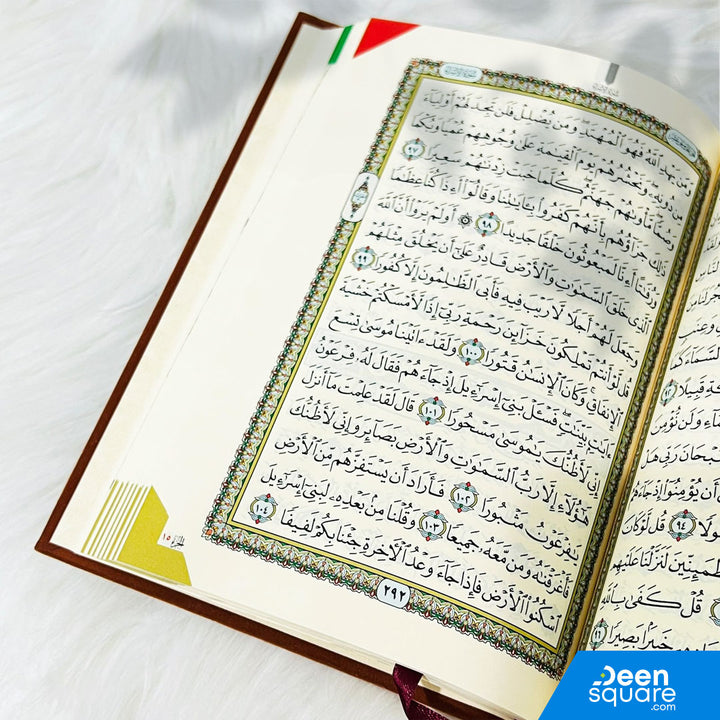 سورة الإسراء
وَمَن يَهْدِ اللَّهُ فَهُوَ الْمُهْتَدِ وَمَن يُضْلِلْ فَلَن تَجِدَ لَهُمْ أَوْلِيَاءَ
مِن دُونِهِ وَنَحْشُرُهُمْ يَوْمَ الْقِيَامَةِ عَلَىٰ وُجُوهِهِمْ عُمْيًا وَبُكْمًا
وَصُمًّا مَّأْوَاهُمْ جَهَنَّمُ كُلَّمَا خَبَتْ زِدْنَاهُمْ سَعِيرًا ٩٧
ذَٰلِكَ جَزَاؤُهُم بِأَنَّهُمْ كَفَرُوا بِآيَاتِنَا وَقَالُوا أَإِذَا كُنَّا عِظَامًا
وَرُفَاتًا أَإِنَّا لَمَبْعُوثُونَ خَلْقًا جَدِيدًا ٩٨ ۞ أَوَلَمْ يَرَوْا أَنَّ اللَّهَ
الَّذِي خَلَقَ السَّمَاوَاتِ وَالْأَرْضَ قَادِرٌ عَلَىٰ أَن يَخْلُقَ مِثْلَهُمْ
وَجَعَلَ لَهُمْ أَجَلًا لَّا رَيْبَ فِيهِ فَأَبَى الظَّالِمُونَ إِلَّا كُفُورًا ٩٩
قُل لَّوْ أَنتُمْ تَمْلِكُونَ خَزَائِنَ رَحْمَةِ رَبِّي إِذًا لَّأَمْسَكْتُمْ خَشْيَةَ
الْإِنفَاقِ وَكَانَ الْإِنسَانُ قَتُورًا ١٠٠ وَلَقَدْ آتَيْنَا مُوسَىٰ تِسْعَ
آيَاتٍ بَيِّنَاتٍ فَسْئَلْ بَنِي إِسْرَائِيلَ إِذْ جَاءَهُمْ فَقَالَ لَهُ فِرْعَوْنُ
إِنِّي لَأَظُنُّكَ يَامُوسَىٰ مَسْحُورًا ١٠١ قَالَ لَقَدْ عَلِمْتَ مَا أَنزَلَ
هَٰؤُلَاءِ إِلَّا رَبُّ السَّمَاوَاتِ وَالْأَرْضِ بَصَائِرَ وَإِنِّي لَأَظُنُّكَ
يَافِرْعَوْنُ مَثْبُورًا ١٠٢ فَأَرَادَ أَن يَسْتَفِزَّهُم مِّنَ الْأَرْضِ
فَأَغْرَقْنَاهُ وَمَن مَّعَهُ جَمِيعًا ١٠٣ وَقُلْنَا مِن بَعْدِهِ لِبَنِي إِسْرَائِيلَ
اسْكُنُوا الْأَرْضَ فَإِذَا جَاءَ وَعْدُ الْآخِرَةِ جِئْنَا بِكُمْ لَفِيفًا ١٠٤
٢٩٢
١٥
قَبِيلًا ٩٢
نُّؤْمِنَ
سُبْحَانَ رَبِّي هَلْ
أَن يُؤْمِنُوا إِذْ جَاءَهُمُ
٩٤ قُل لَّوْ كَانَ
مُطْمَئِنِّينَ لَنَزَّلْنَا عَلَيْهِم
قُلْ كَفَىٰ بِاللَّهِ
خَبِيرًا بَصِيرًا ٩٦
Deen
square
.com